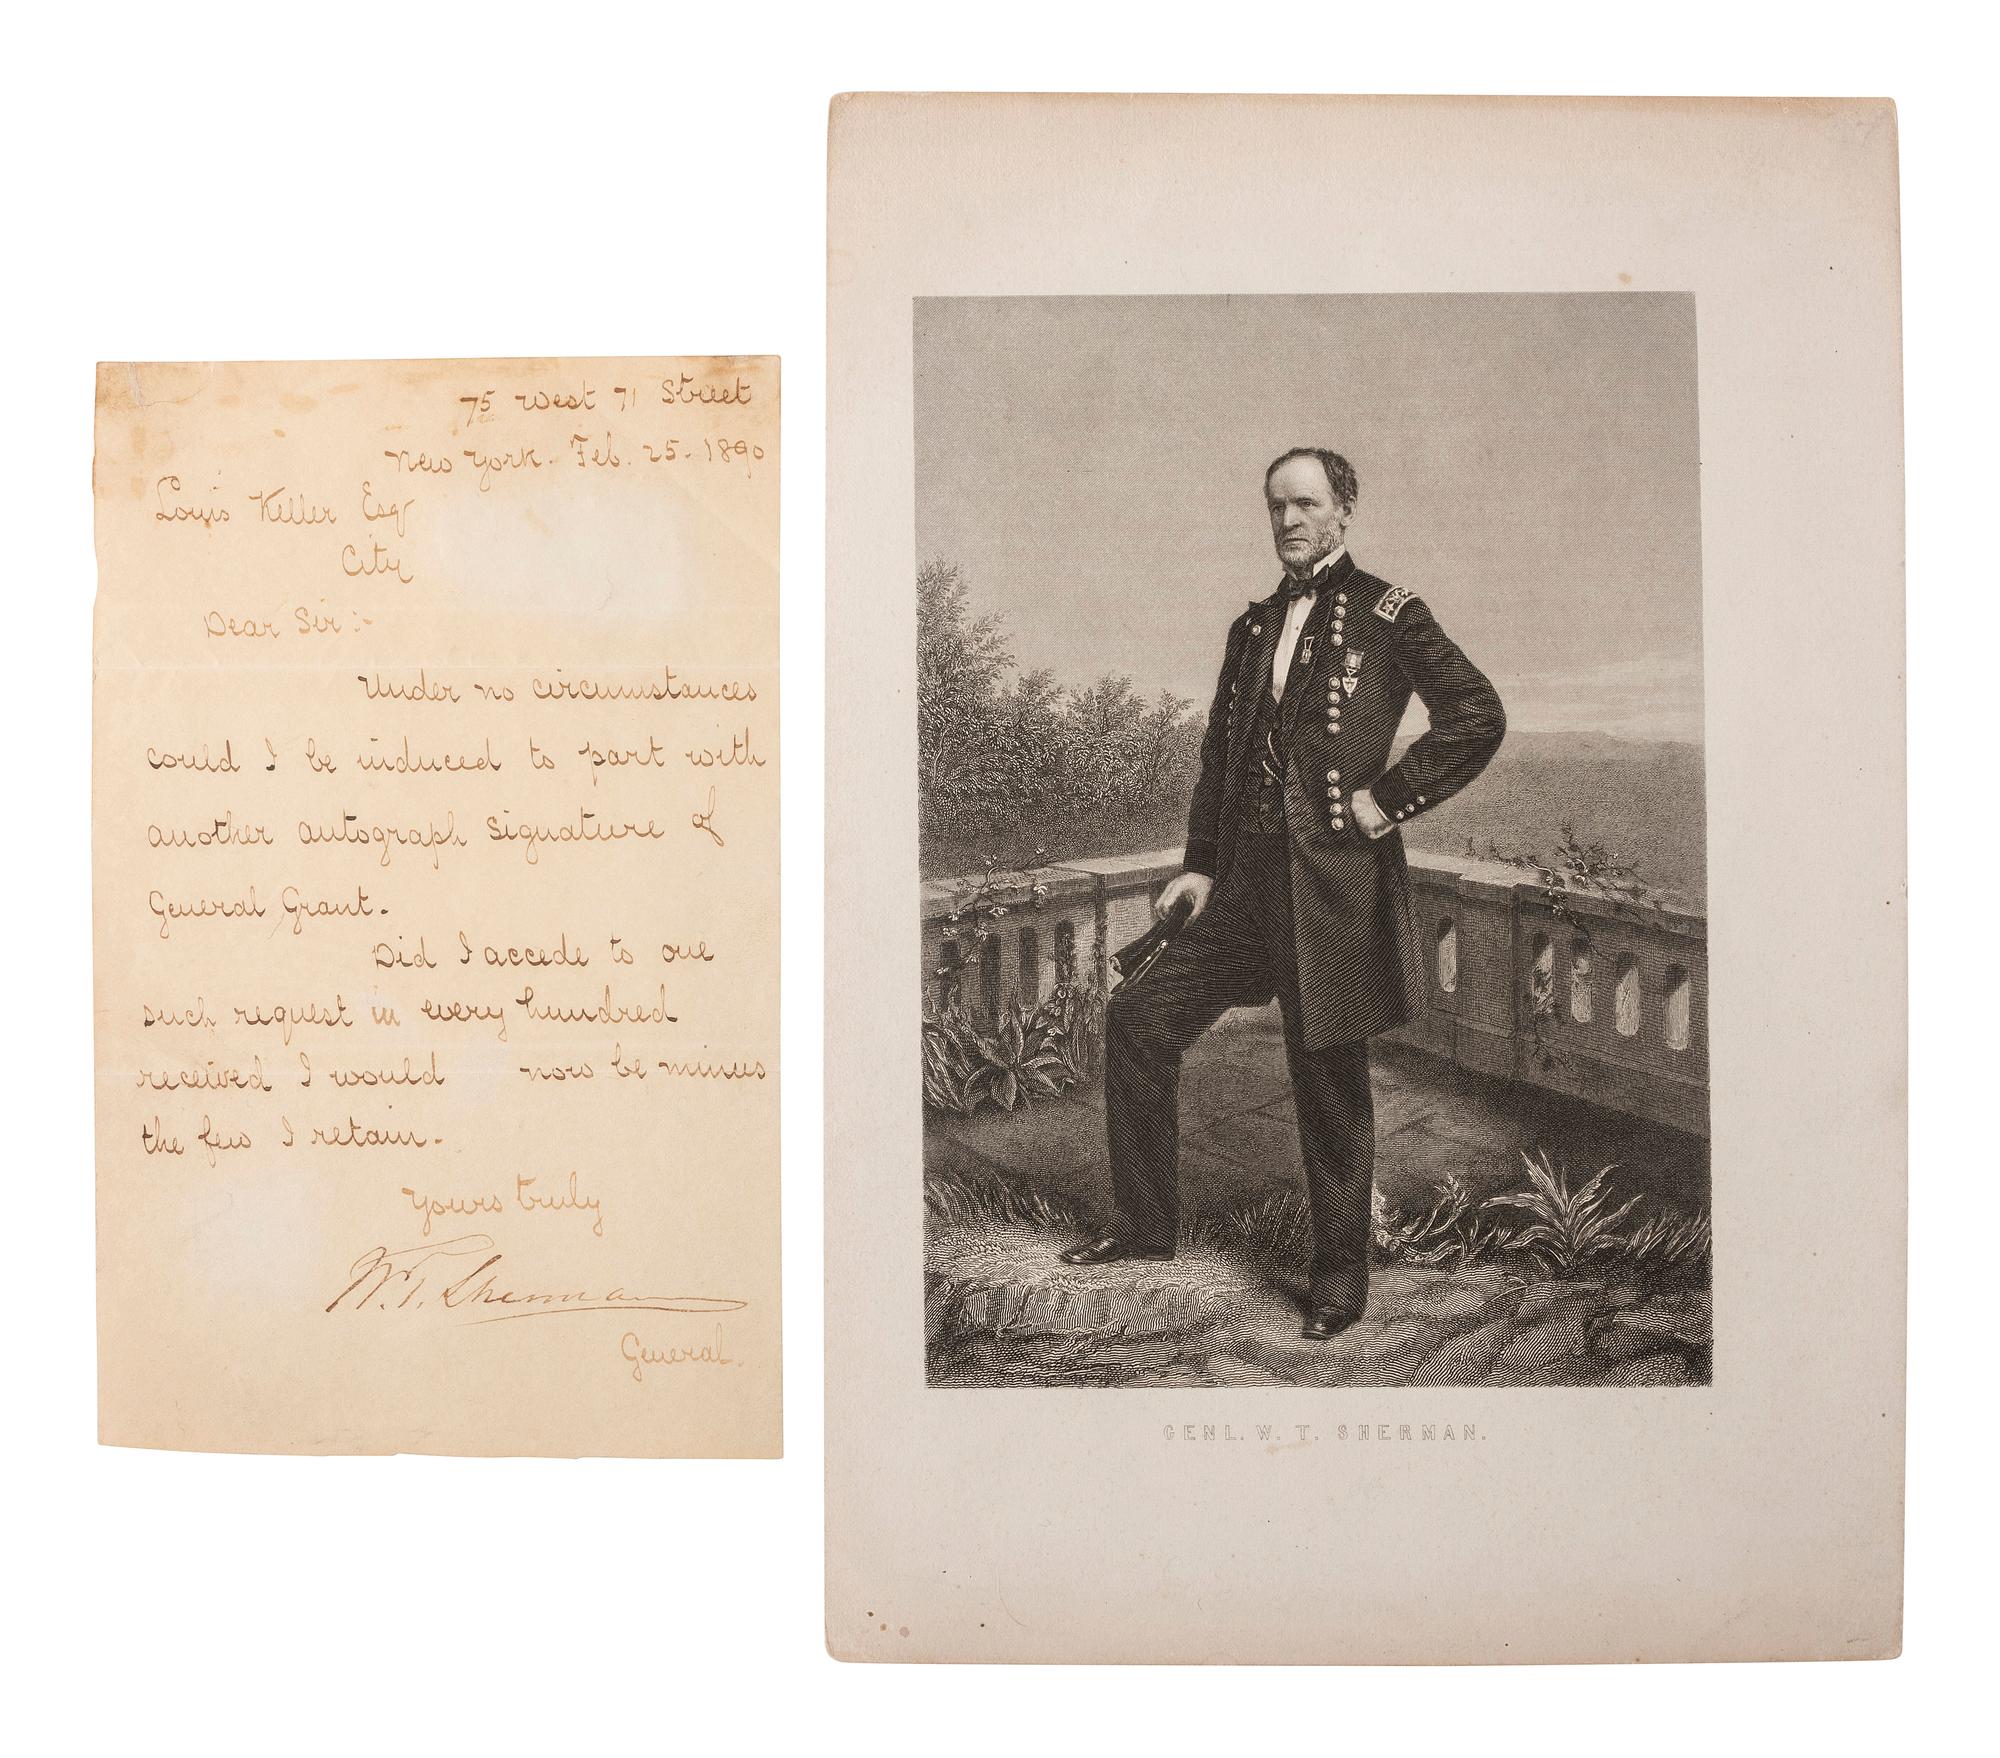 75 West 71 Street
New York. Feb. 25. 1890
Louis Keller Esq
City
Dear Sir :-
Under no circumstances
could I be induced to part with
another autograph signature of
General Grant.
Did I accede to one
such request in every hundred
received I would now be minus
the few I retain.
Yours truly
W. T. Sherman
General.
GENL. W. T. SHERMAN.